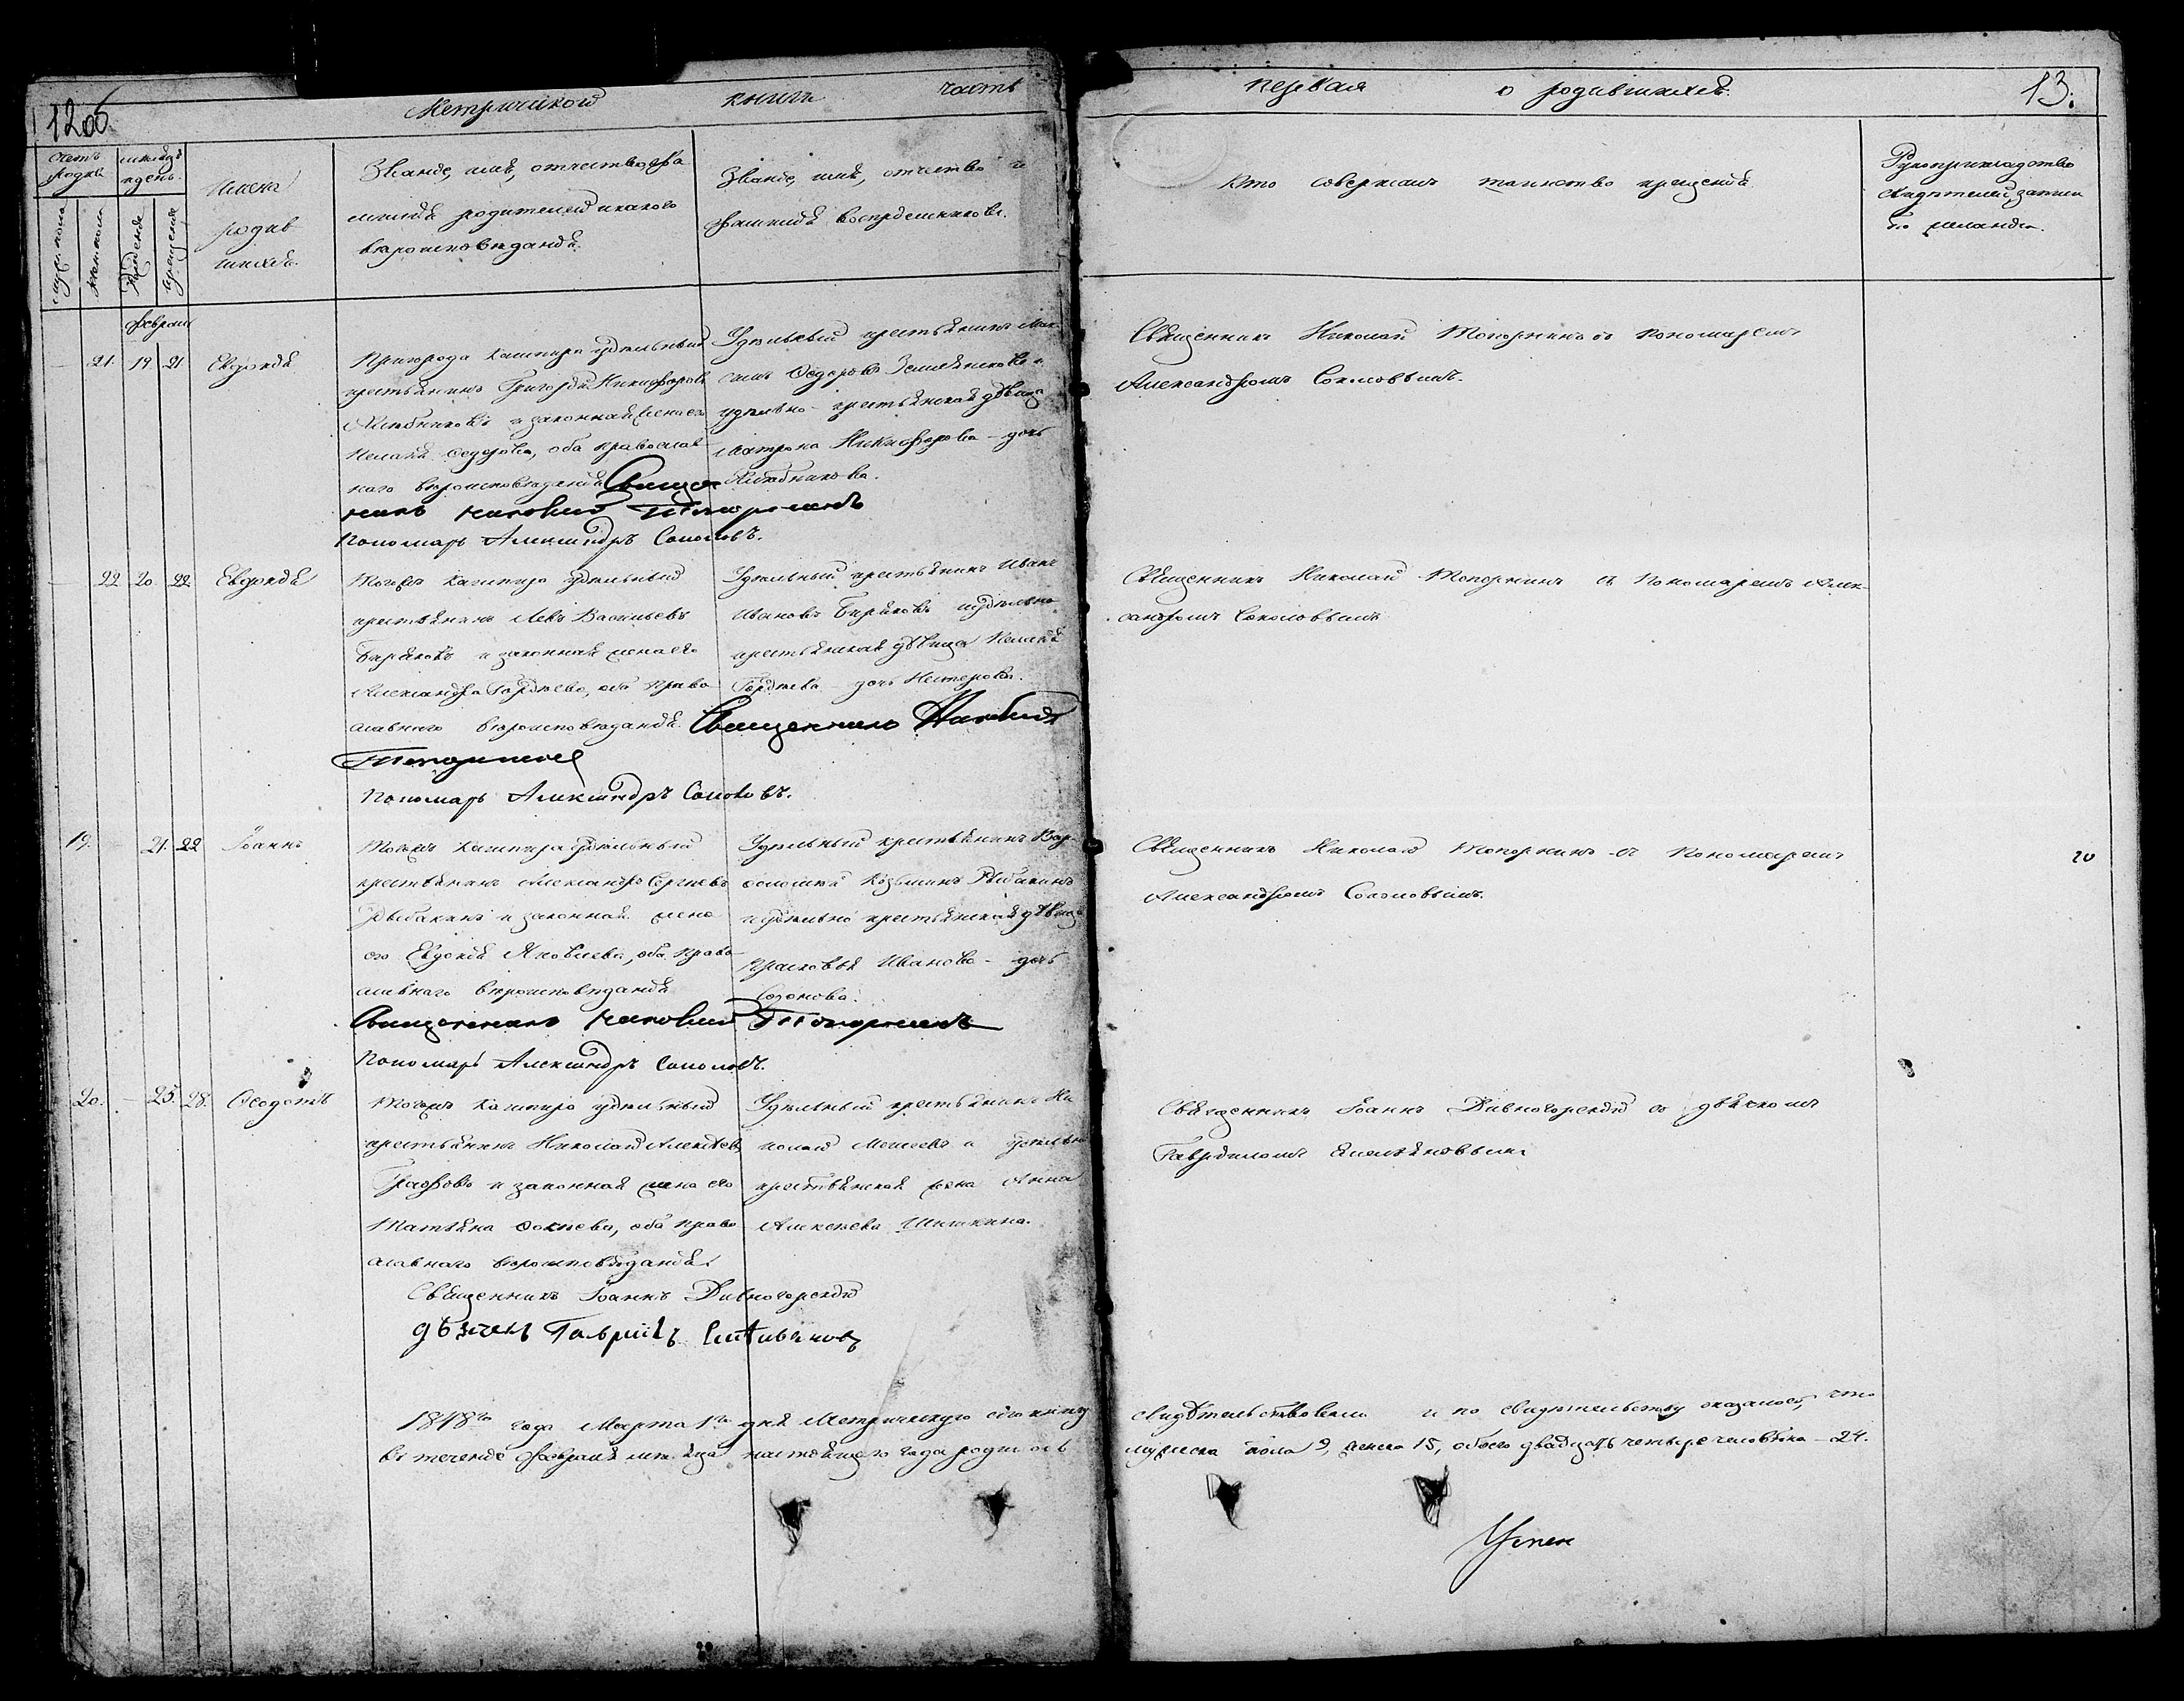 12об.
Метрической книги часть
первая о родившихся.
13.
Счетъ родив
мѣсяцъ и день.
мужеска пола
женскаго
рожденія
крещенія
Имена
родив
шихся.
Званіе, имя, отчество, фа
милія родителей и какого
вѣроисповѣданія.
Званіе, имя, отчество и
фамилія воспріемниковъ.
Кто совершалъ таинство крещенія.
Рукоприкладство
свидѣтелей записи
по желанію.
Февраль
21. 19 21 Евдокія
Пригорода Кашпира удѣльный
крестьянинъ Григорій Никифоровъ
и законная жена его
Пелагія Ѳедорова, оба православ
наго вѣроисповѣданія Священ
никъ Николай Топорнинъ
Пономарь Александръ Соколовъ.
Удѣльный крестьянинъ Мак
симъ Ѳедоровъ и
удѣльно-крестьянская дѣвица
Матрона Никифорова дочь
Священникъ Николай Топорнинъ съ пономаремъ
Александромъ Соколовымъ.
22 20. 22. Евдокія
Тогожъ Кашпира удѣльный
крестьянинъ Левъ Васильевъ
Бирюковъ и законная жена его
Александра Гордѣева, оба право
славнаго вѣроисповѣданія. Священникъ Николай
Топорнинъ
Пономарь Александръ Соколовъ.
Удѣльный крестьянинъ Иванъ
Ивановъ Бирюковъ и удѣльно
крестьянская дѣвица Пелагія
Гордѣева дочь Нестерова.
Священникъ Николай Топорнинъ съ Пономаремъ Алек
сандромъ Соколовымъ
19. 21. 22 Іоаннъ
Тогожъ Кашпира удѣльный
крестьянинъ Александръ Сергѣевъ
Рыбакинъ и законная жена
его Евдокія Яковлева, оба право
славнаго вѣроисповѣданія
Священникъ Николай Топорнинъ
Пономарь Александръ Соколовъ.
Удѣльный крестьянинъ Вар
ѳоломей Козьминъ Рыбакинъ
и удѣльно крестьянская дѣвица
Прасковья Иванова дочь
Созонова.
Священникъ Николай Топорнинъ съ Пономаремъ
Александромъ Соколовымъ.
20. 25. 28. Ѳеодотъ
Тогожъ Кашпира удѣльный
крестьянинъ Николай Алексѣевъ
Графовъ и законная жена его
Татьяна Фокѣева, оба право
славнаго вѣроисповѣданія.
Священникъ Іоаннъ Дивногорскій
дьячекъ Гавріилъ
Удѣльный крестьянинъ Ни
колай Моисеевъ и удѣльно
крестьянская жена Анна
Алексѣева Шишкина.
Священникъ Іоаннъ Дивногорскій съ дьячкомъ
Гавріиломъ
1848го года Марта 1го дня Метрическую сію книгу
свидѣтельствовали и по свидѣтельству оказалось, что
въ теченіе Февраля мѣсяца настоящаго года родилось
мужеска пола 9, женска 15, обоего двадцать четыре человѣка 24.